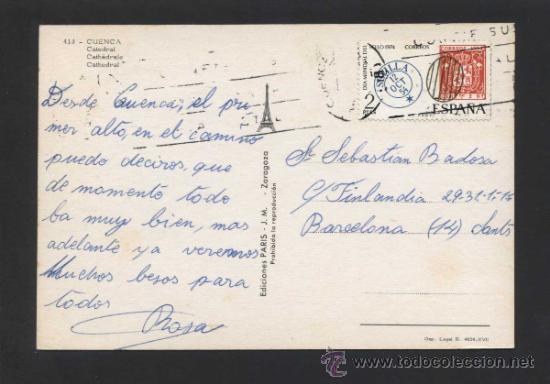 433 - CUENCA
Catedral
Cathédrale
Cathedral
CORREOS
SEVILLA
2
PTAS
ESPAÑA
CUENCA
Desde Cuenca, el pri
mer alto, en el camino
puedo deciros, que
de momento todo
ba muy bien, mas
adelante ya veremos
Muchos besos para
todos
Rosa
Ediciones PARIS - J. M. - Zaragoza
Prohibida la reproducción
Sr Sebastian Badosa
C/ Finlandia
Barcelona (14) Sants
Dep. Legal B.
www.todocoleccion.net